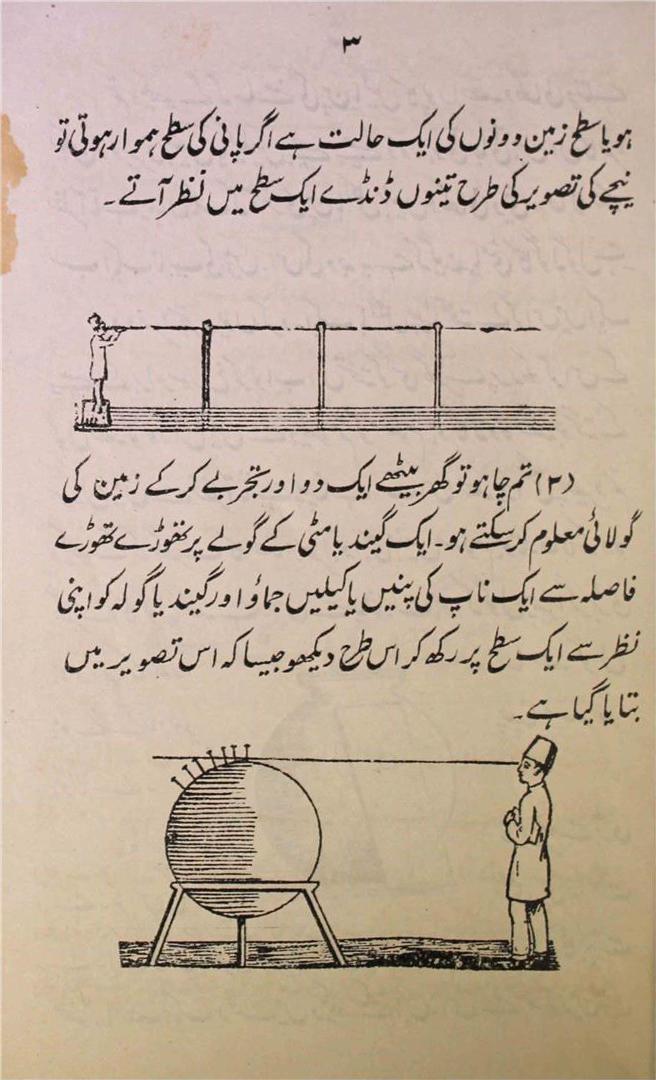 ۳
ہو یا سطح زمین دونوں کی ایک حالت ہے اگر پانی کی سطح ہموار ہوتی تو
نیچے کی تصویر کی طرح تینوں ڈنڈے ایک سطح میں نظر آتے۔
(۲) تم چاہو تو گھر بیٹھے ایک دو اور تجربے کر کے زمین کی
گولائی معلوم کر سکتے ہو۔ ایک گیند یا مٹی کے گولے پر تھوڑے تھوڑے
فاصلہ سے ایک ناپ کی پنیں یا کیلیں جماؤ اور گیند یا گولہ کو اپنی
نظر سے ایک سطح پر رکھ کر اس طرح دیکھو جیسا کہ اس تصویر میں
بتایا گیا ہے۔